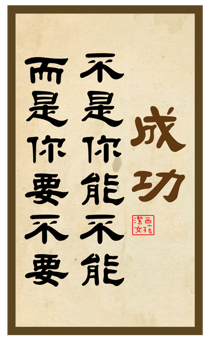 成功
不是你能不能
而是你要不要